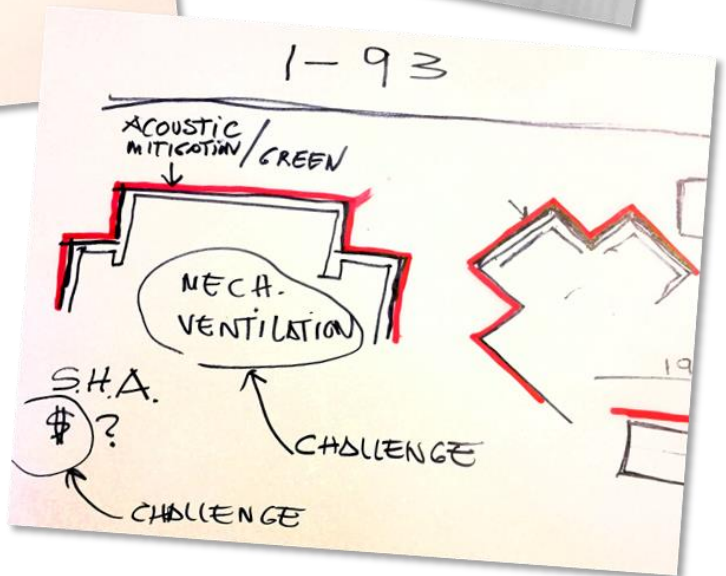 1-93
ACOUSTIC
MITIGATION/GREEN
MECH.
VENTILATION
S.H.A.
$?
CHALLENGE
CHALLENGE
19